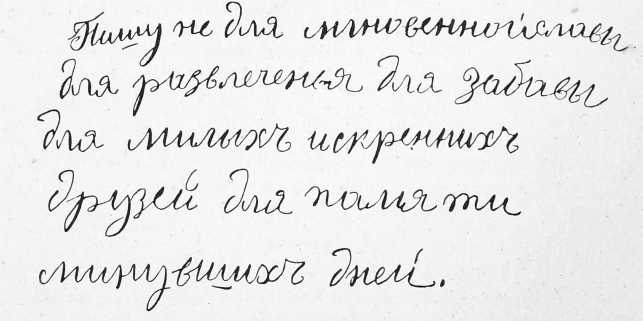 Пишу не для мгновенной славы
для развлеченья для забавы
для милыхъ искреннихъ
друзей для памяти
минувшихъ дней.